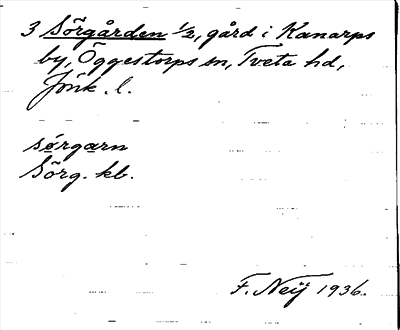 3 Sörgården 1/2, gård i Kanarps
by, Öggestorps sn, Tveta hd,
Jönk. l.
sørgarn
Sörg. kb.
F. Neij 1936.